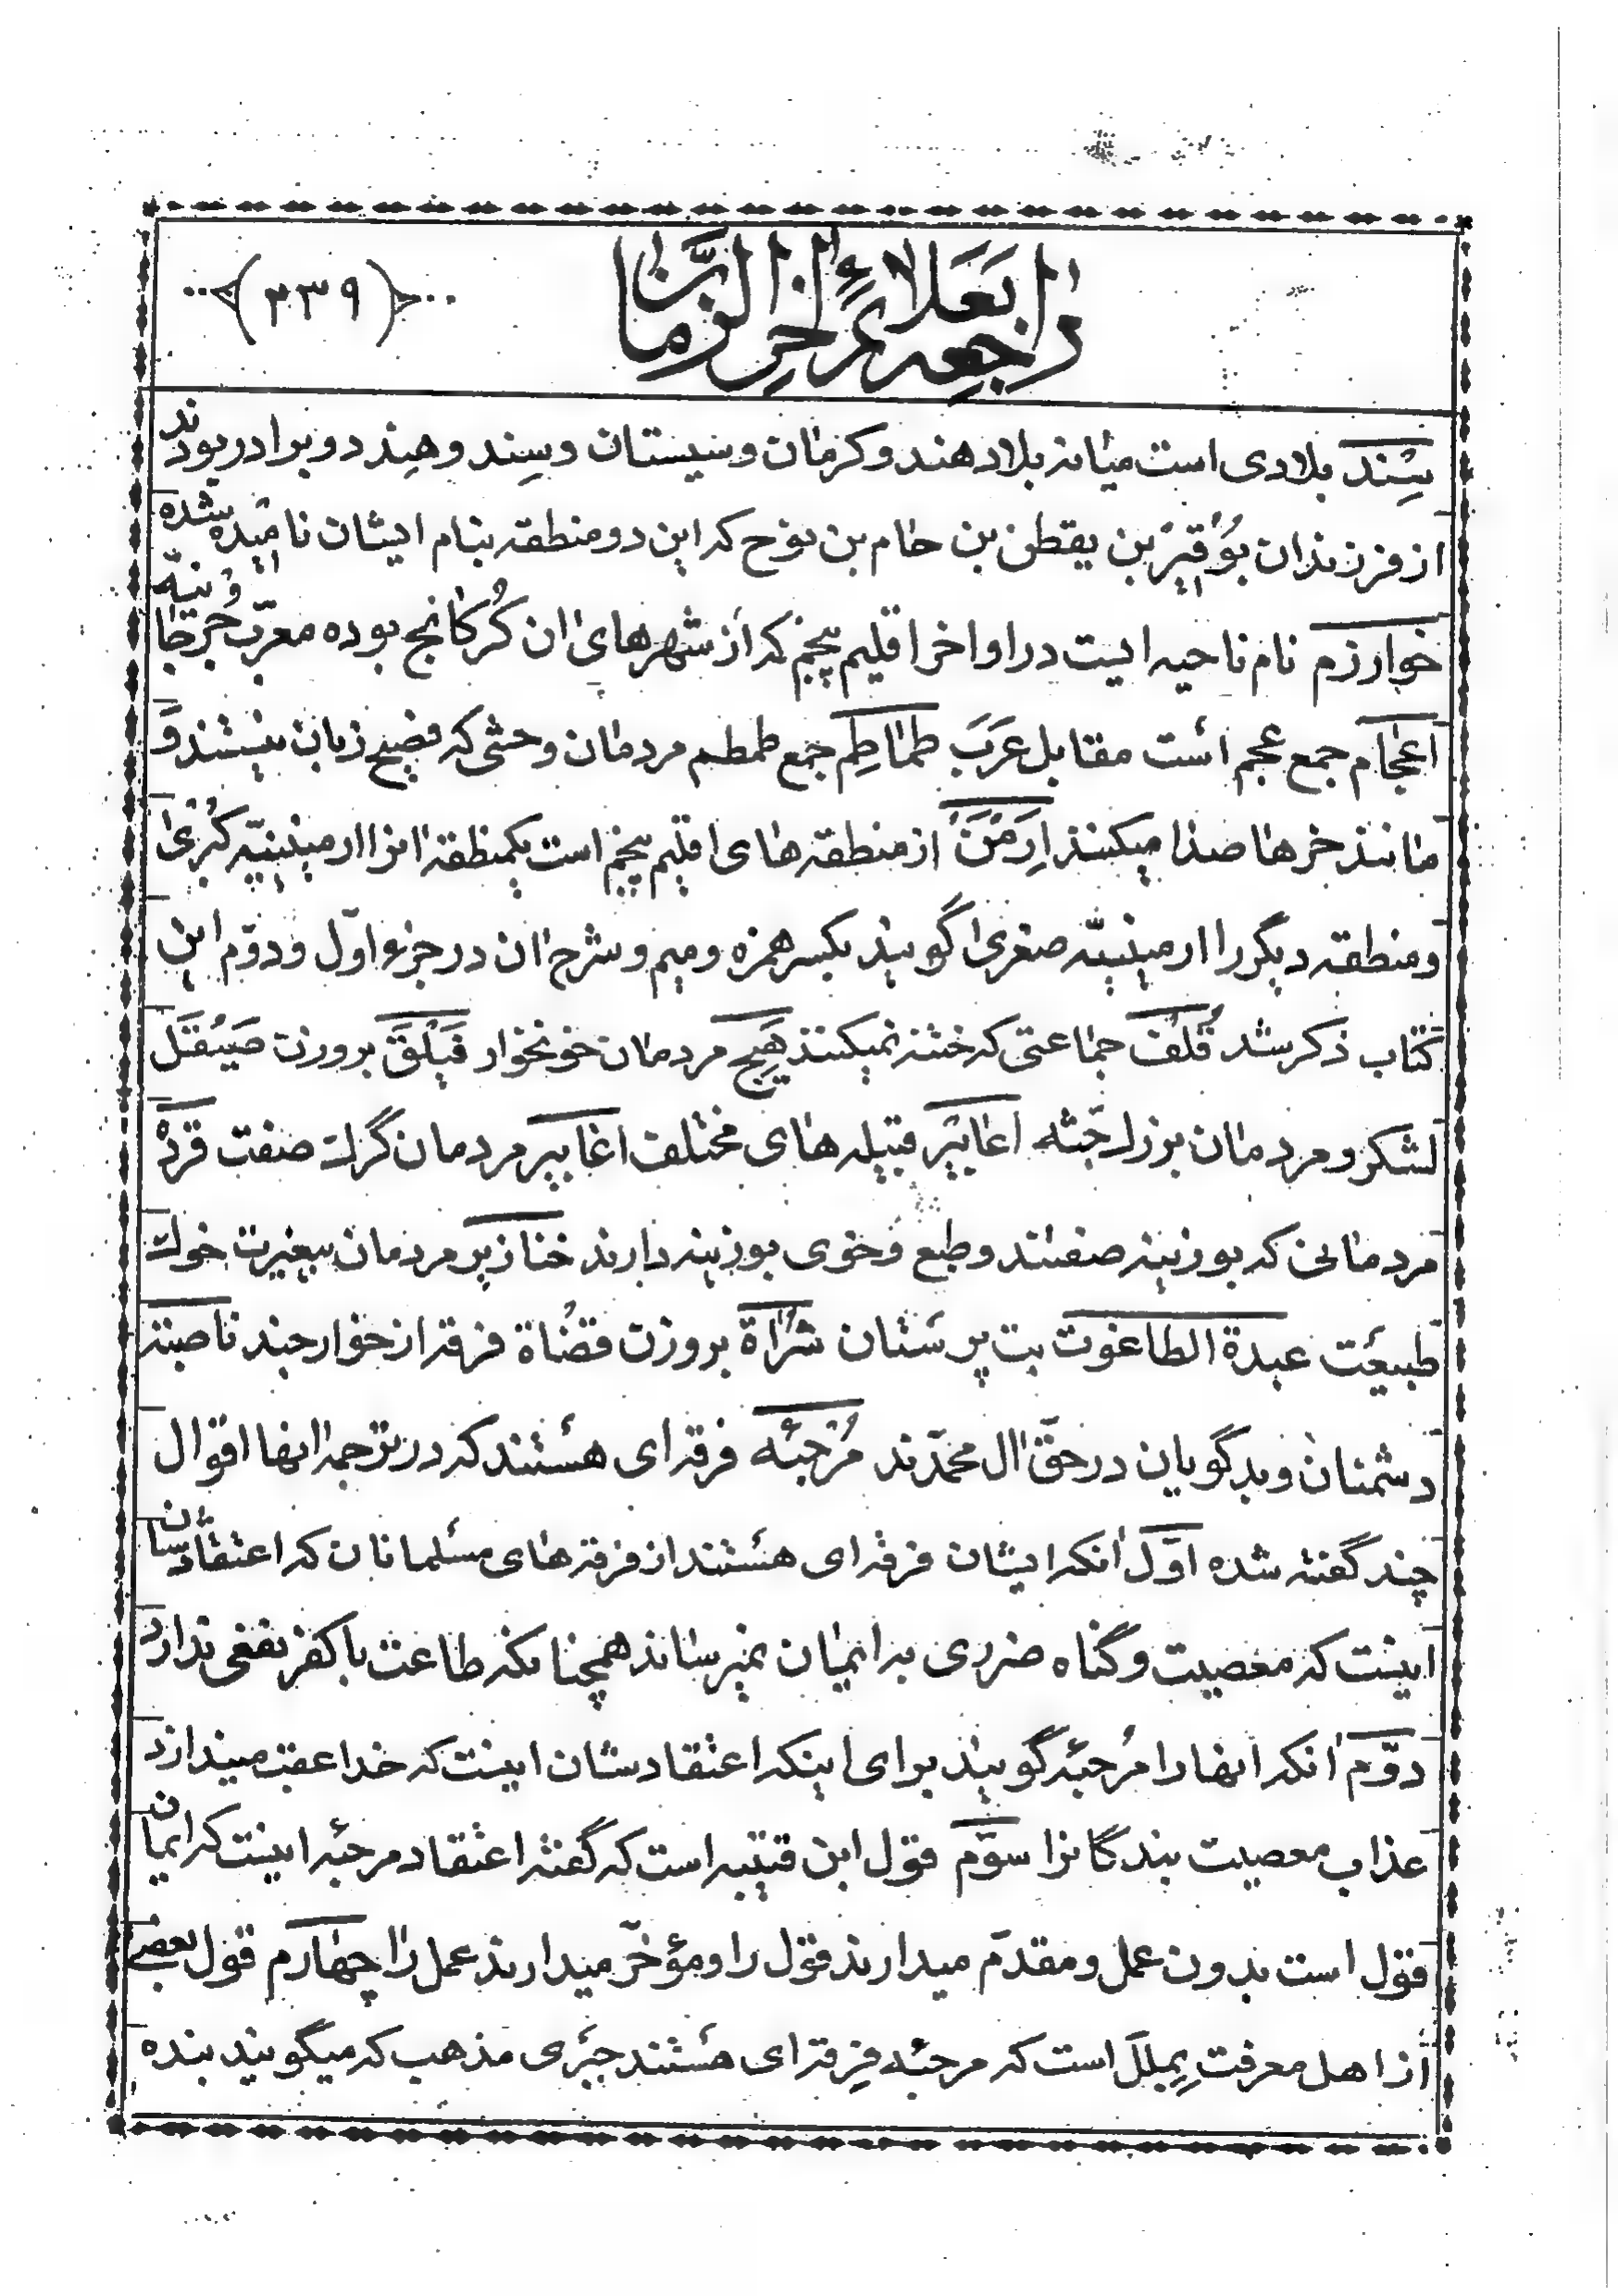 راجعه بعلائم اخر الزمان
(۳۳۹)
سِنْد بلادی است میانه بلاد هند و کرمان و سیستان و سِند و هِند دو برادر بودند
از فرزندان بُوقیرْ بن یقطن بن حام بن نوح که این دو منطقه بنام ایشان نامیده شده
خوارزم نام ناحیه ایست در اواخر اقلیم پنجم که از شهرهای ان کُرکانج بوده معرّب جُرجانیّه
اعجام جمع عجم است مقابل عَرَب طماطِم جمع طمطم مردمان وحشی که فصیح زبان نیستند وَ
مانند خرها صدا میکنند اِرَمْنَ از منطقه های اقلیم پنجم است یکمنطقه انرا ارمینیّه کُبْری
و منطقه دیگر را ارمینیّه صغری گویند بکسر همزه و میم و شرح ان در جزء اوّل و دوّم این
کتاب ذکر شد قُلُف جماعتی که ختنه نمیکنند هَیِج مردمان خونخوار فَیْلَقَ بروزن صَیْقَل
لشکر و مردمان بزرك جثّه اعابیر قبیله های مختلف اغابیر مردمان گرك صفت قرَدْ
مردمانی که بوزینه صفتند و طبع و خوی بوزینه دارند خنازیر مردمان بیغیرت خوك
طبیعت عبدة الطاغوت بت پرستان شُراة بروزن قضُاة فرقه از خوارجند ناصبند
دشمنان و بدگویان در حقّ ال محمّدند مُرْجئه فرقه ای هستند که در ترجمه انها اقوال
چند گفته شده اوّل انکه ایشان فرقه ای هستند از فرقه های مسلمانان که اعتقادشان
اینست که معصیت و گناه ضرری به ایمان نمیرساند همچنانکه طاعت با کفر نفعی ندارد
دوّم انکه انها را مُرجئه گویند برای اینکه اعتقادشان اینست که خدا عقب میندازد
عذاب معصیت بندگانرا سوّم قول ابن قتیبه است که گفته اعتقاد مرجئه اینست که ایمان
قول است بدون عمل و مقدّم میدارند قول را و مؤخّر میدارند عمل را چهارم قول بعضی
از اهل معرفت بِمِلَل است که مرجئه فِرقه ای هستند جَبْری مذهب که میگویند بنده